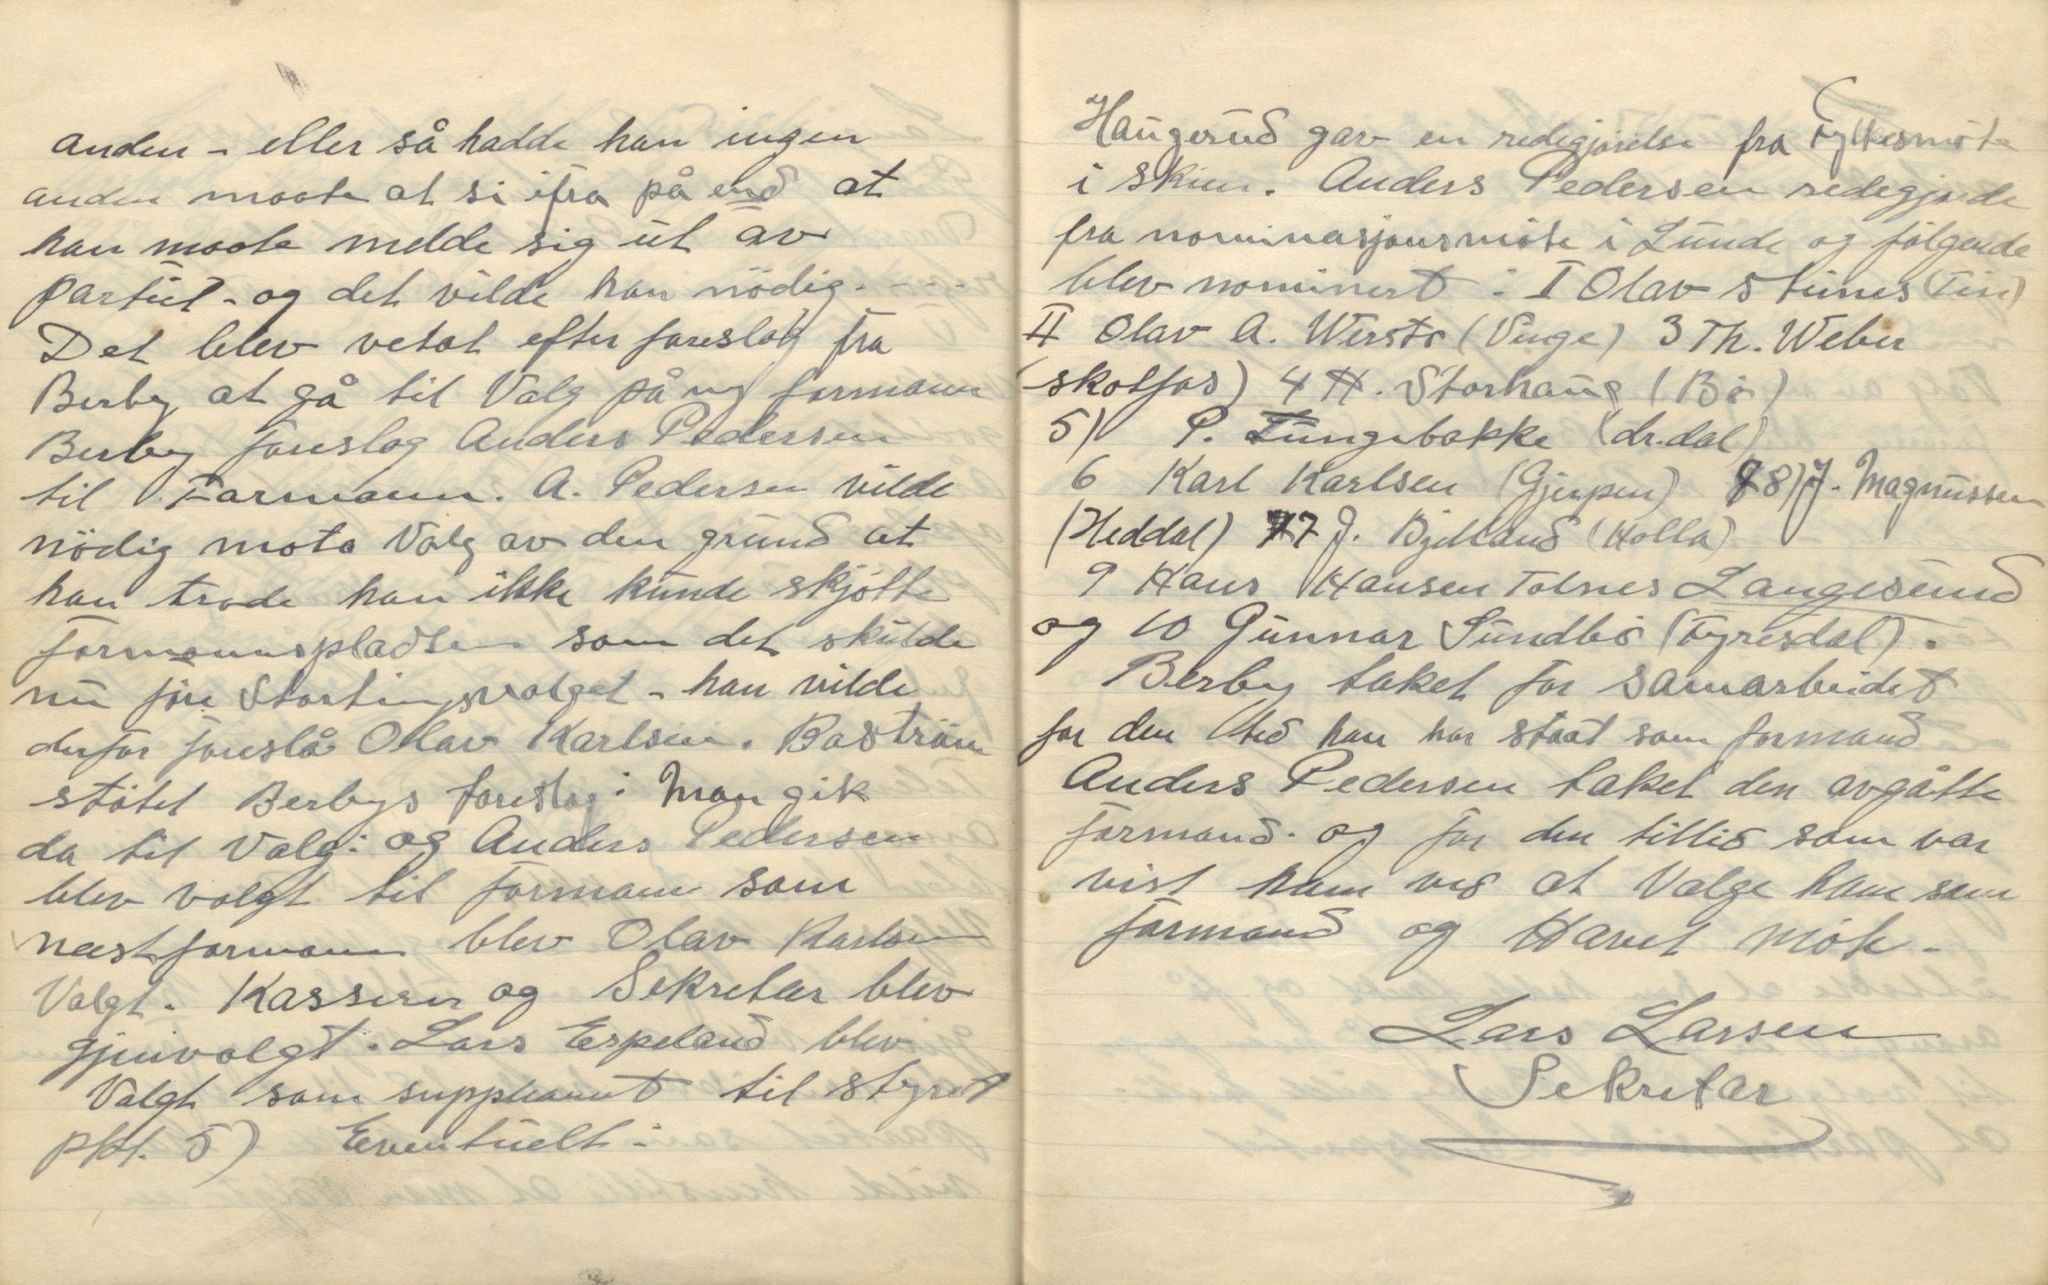 anden - eller så hadde han ingen
anden maate at si ifra på end at
han maate melde sig ut av
partiet - og det vilde han nödig - - - -
Det blev vetat efter foreslag fra
Berby at gå til Valg på ny formann
Berby foreslog Anders Pedersen
til Formann. A. Pedersen vilde
nödig mota Valg av den grund at
han trode han ikke kunde skjötte
formannspladsen som det skulde
nu före Stortingsvalget - han vilde
derfor foreslå Olav Karlsen. Baström
stötet Berbys foreslag: Man gik
da til Valg: og Anders Pedersen
blev valgt til formann som
næstformann blev Olav Karlsen
Valgt. Kasserer og Sekretær blev
gjenvalgt. Lars Espeland blev
Valgt som suppleant til styret
pkt. 5) Eventuelt:
Haugerud gav en redegjørelse fra Fylkesmøte
i Skien. Anders Pedersen redegjorde
fra nominasjonsmøte i Lunde og følgende
blev nominert : I Olav Steines (Tin)
II Olav A. Wersto (Vinje) 3 Th. Weber
(skotfos) 4 H. Storhaug (Bø)
5) P. Lungebakke (dr.dal)
6 Karl Karlsen (Gjerpen) 8 8) J. Magnussen
(Heddal) 7 7 J. Bjelland (Holla)
9 Hans Hansen Tolnes Langesund
og 10 Gunnar Sundbö (Fyresdal).
Berby taket for samarbeidet
for den tid han har staat som formand
Anders Pedersen taket den avgåtte
formand og for den tillid som var
vist ham ved at Valge ham som
formand og Hævet møte -
Lars Larsen
Sekretær